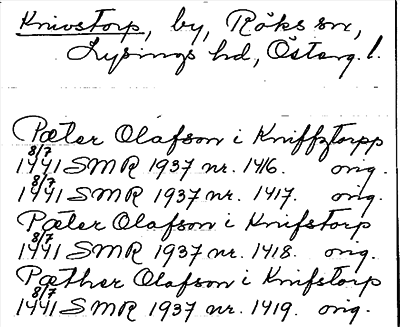 Knivstorp, by, Röks sn,
Lysings hd, Österg. l.
Pæter Olafson i Kniffztorpp
8/7 1441 SMR 1937 nr. 1416. orig.
8/7 1441 SMR 1937 nr. 1417. orig.
Pæter Olafson i Knifstorp
8/7 1441 SMR 1937 nr. 1418. orig.
Pæther Olafson i Knifstorp
8/7 1441 SMR 1937 nr. 1419. orig.